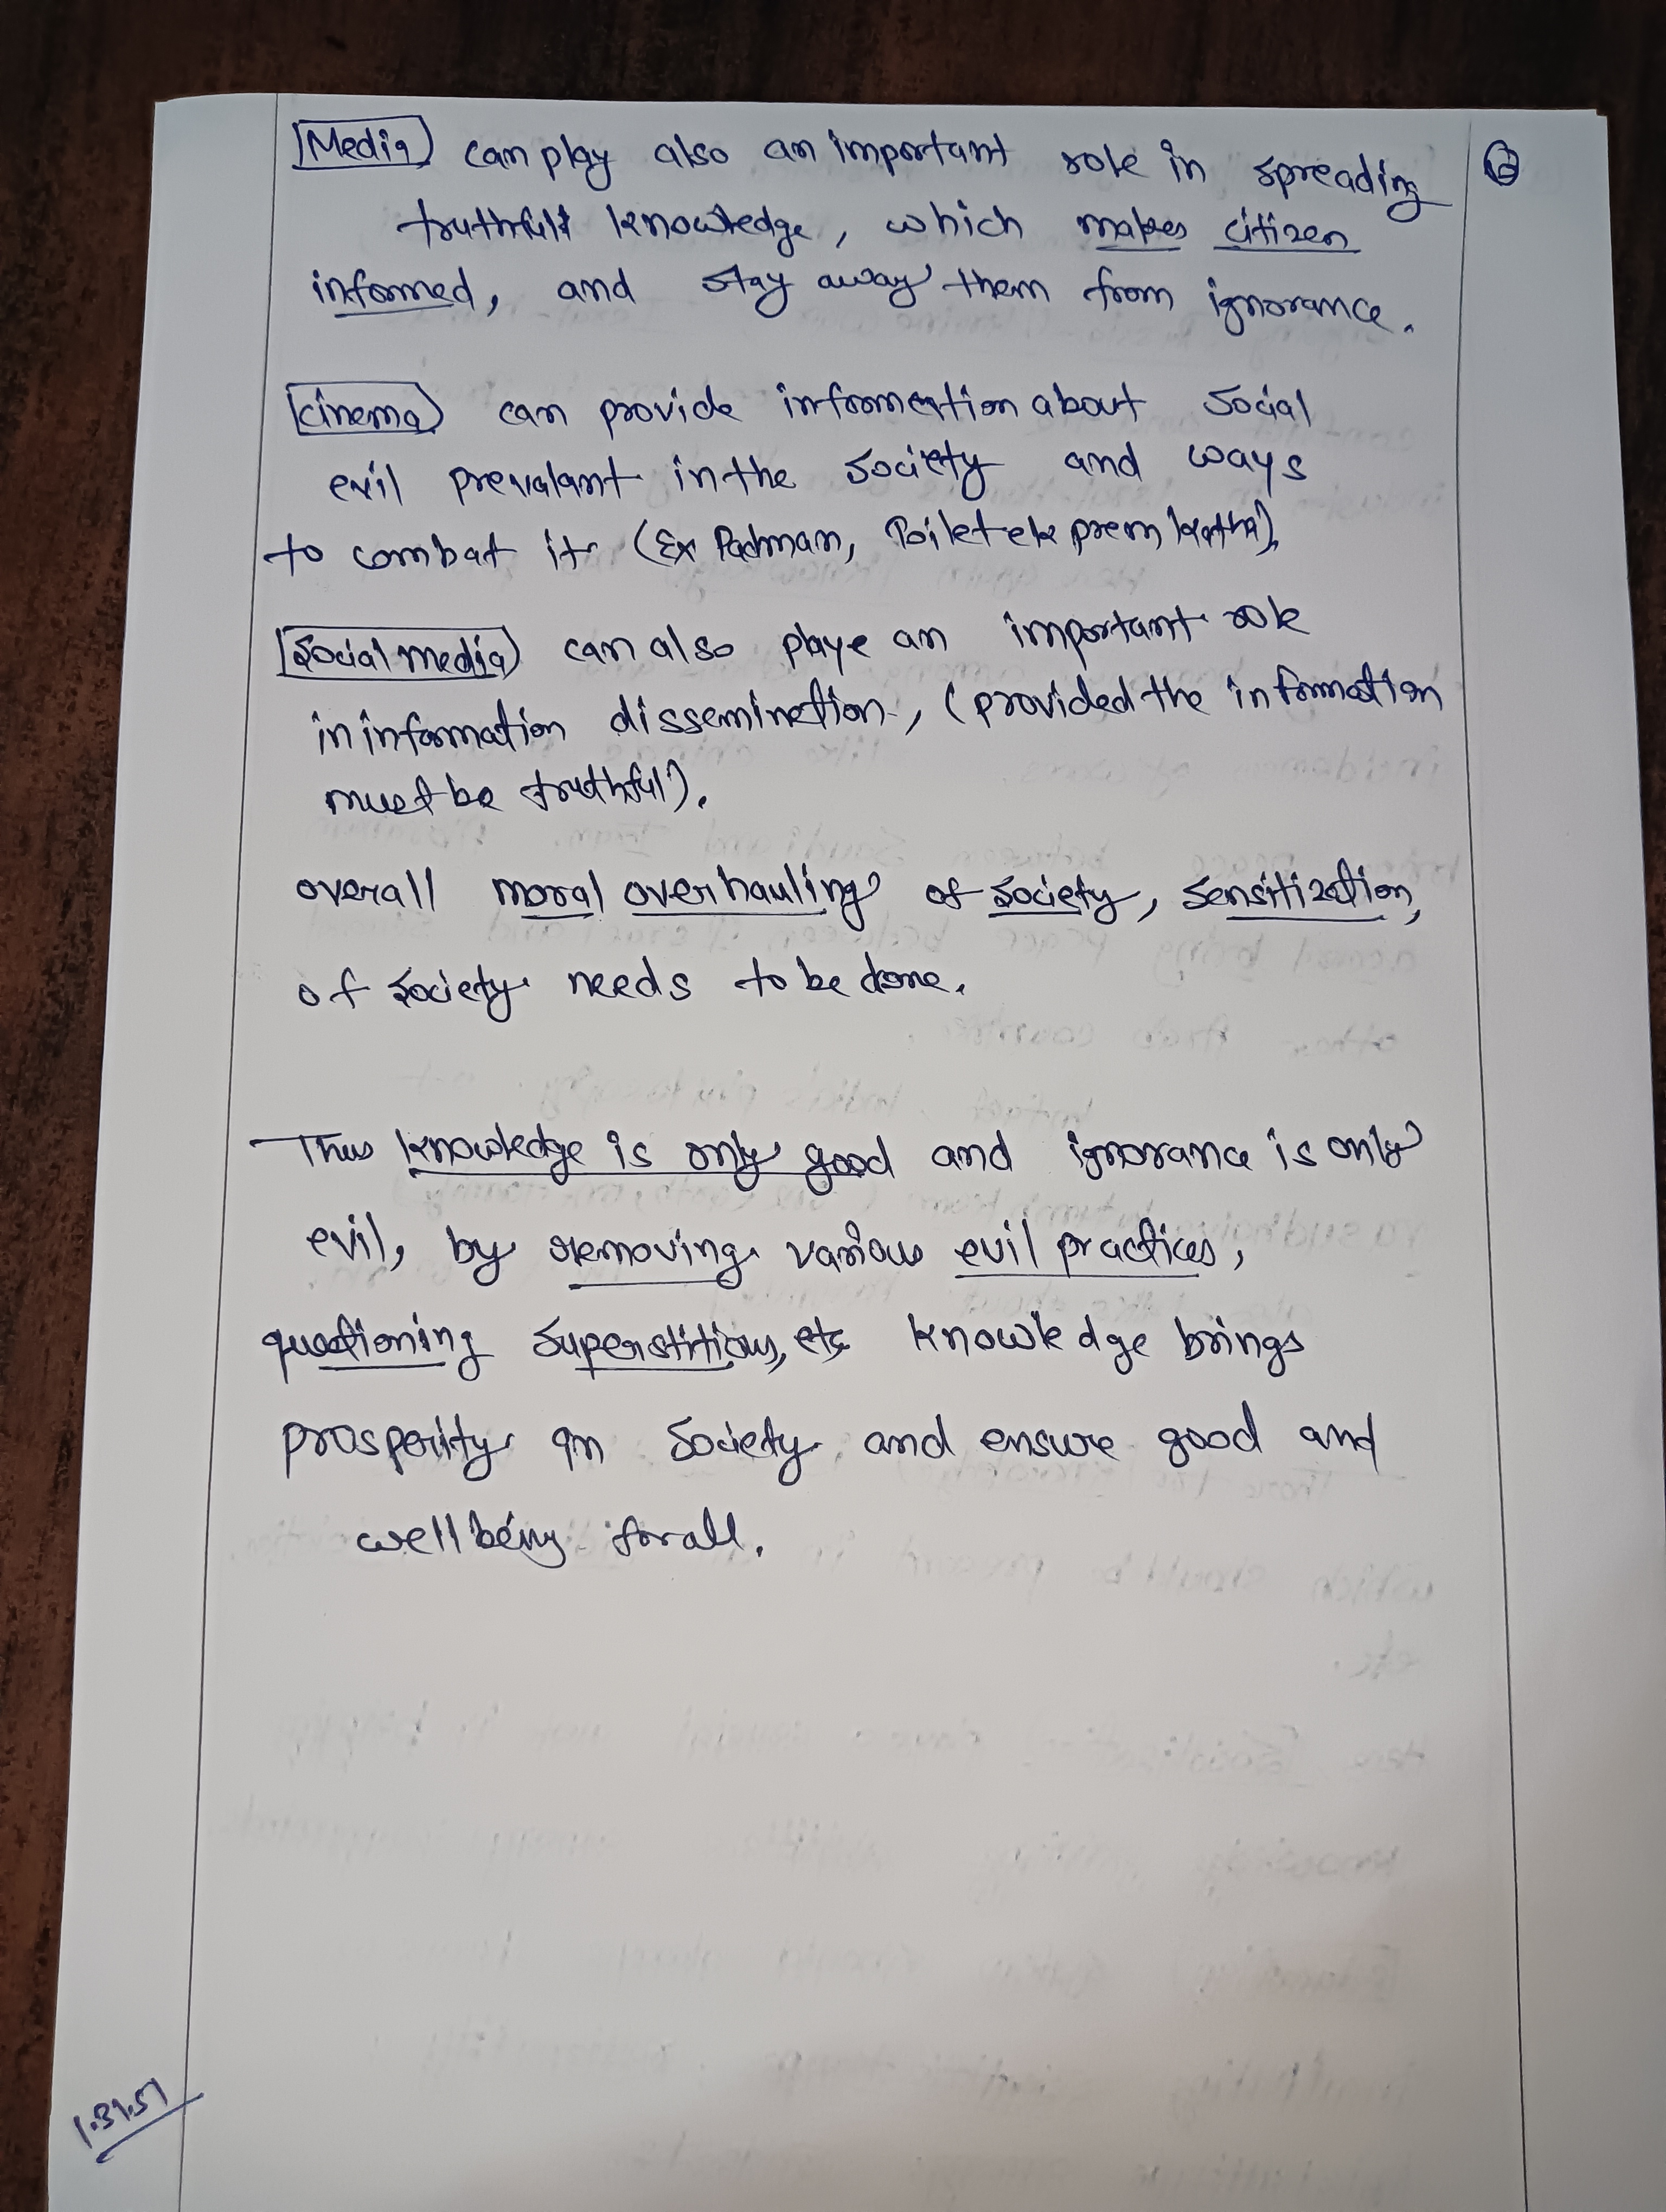 Media can play also an important role in spreading
truthfult knowledge, which makes citizen
informed, and stay away them from ignorance.
cinema can provide information about social
evil prevalant in the society and ways
to combat it (Ex Padman, Toilet ek prem katha),
Social media can also playe an important role
in information dissemination, (provided the information
must be truthful).
overall moral overhauling of society, sensitization,
of society needs to be done.
Thus knowledge is only good and ignorance is only
evil, by removing various evil practices,
questioning superstitions, etc knowledge brings
prosperity in society and ensure good and
wellbeing for all.
1.31.51